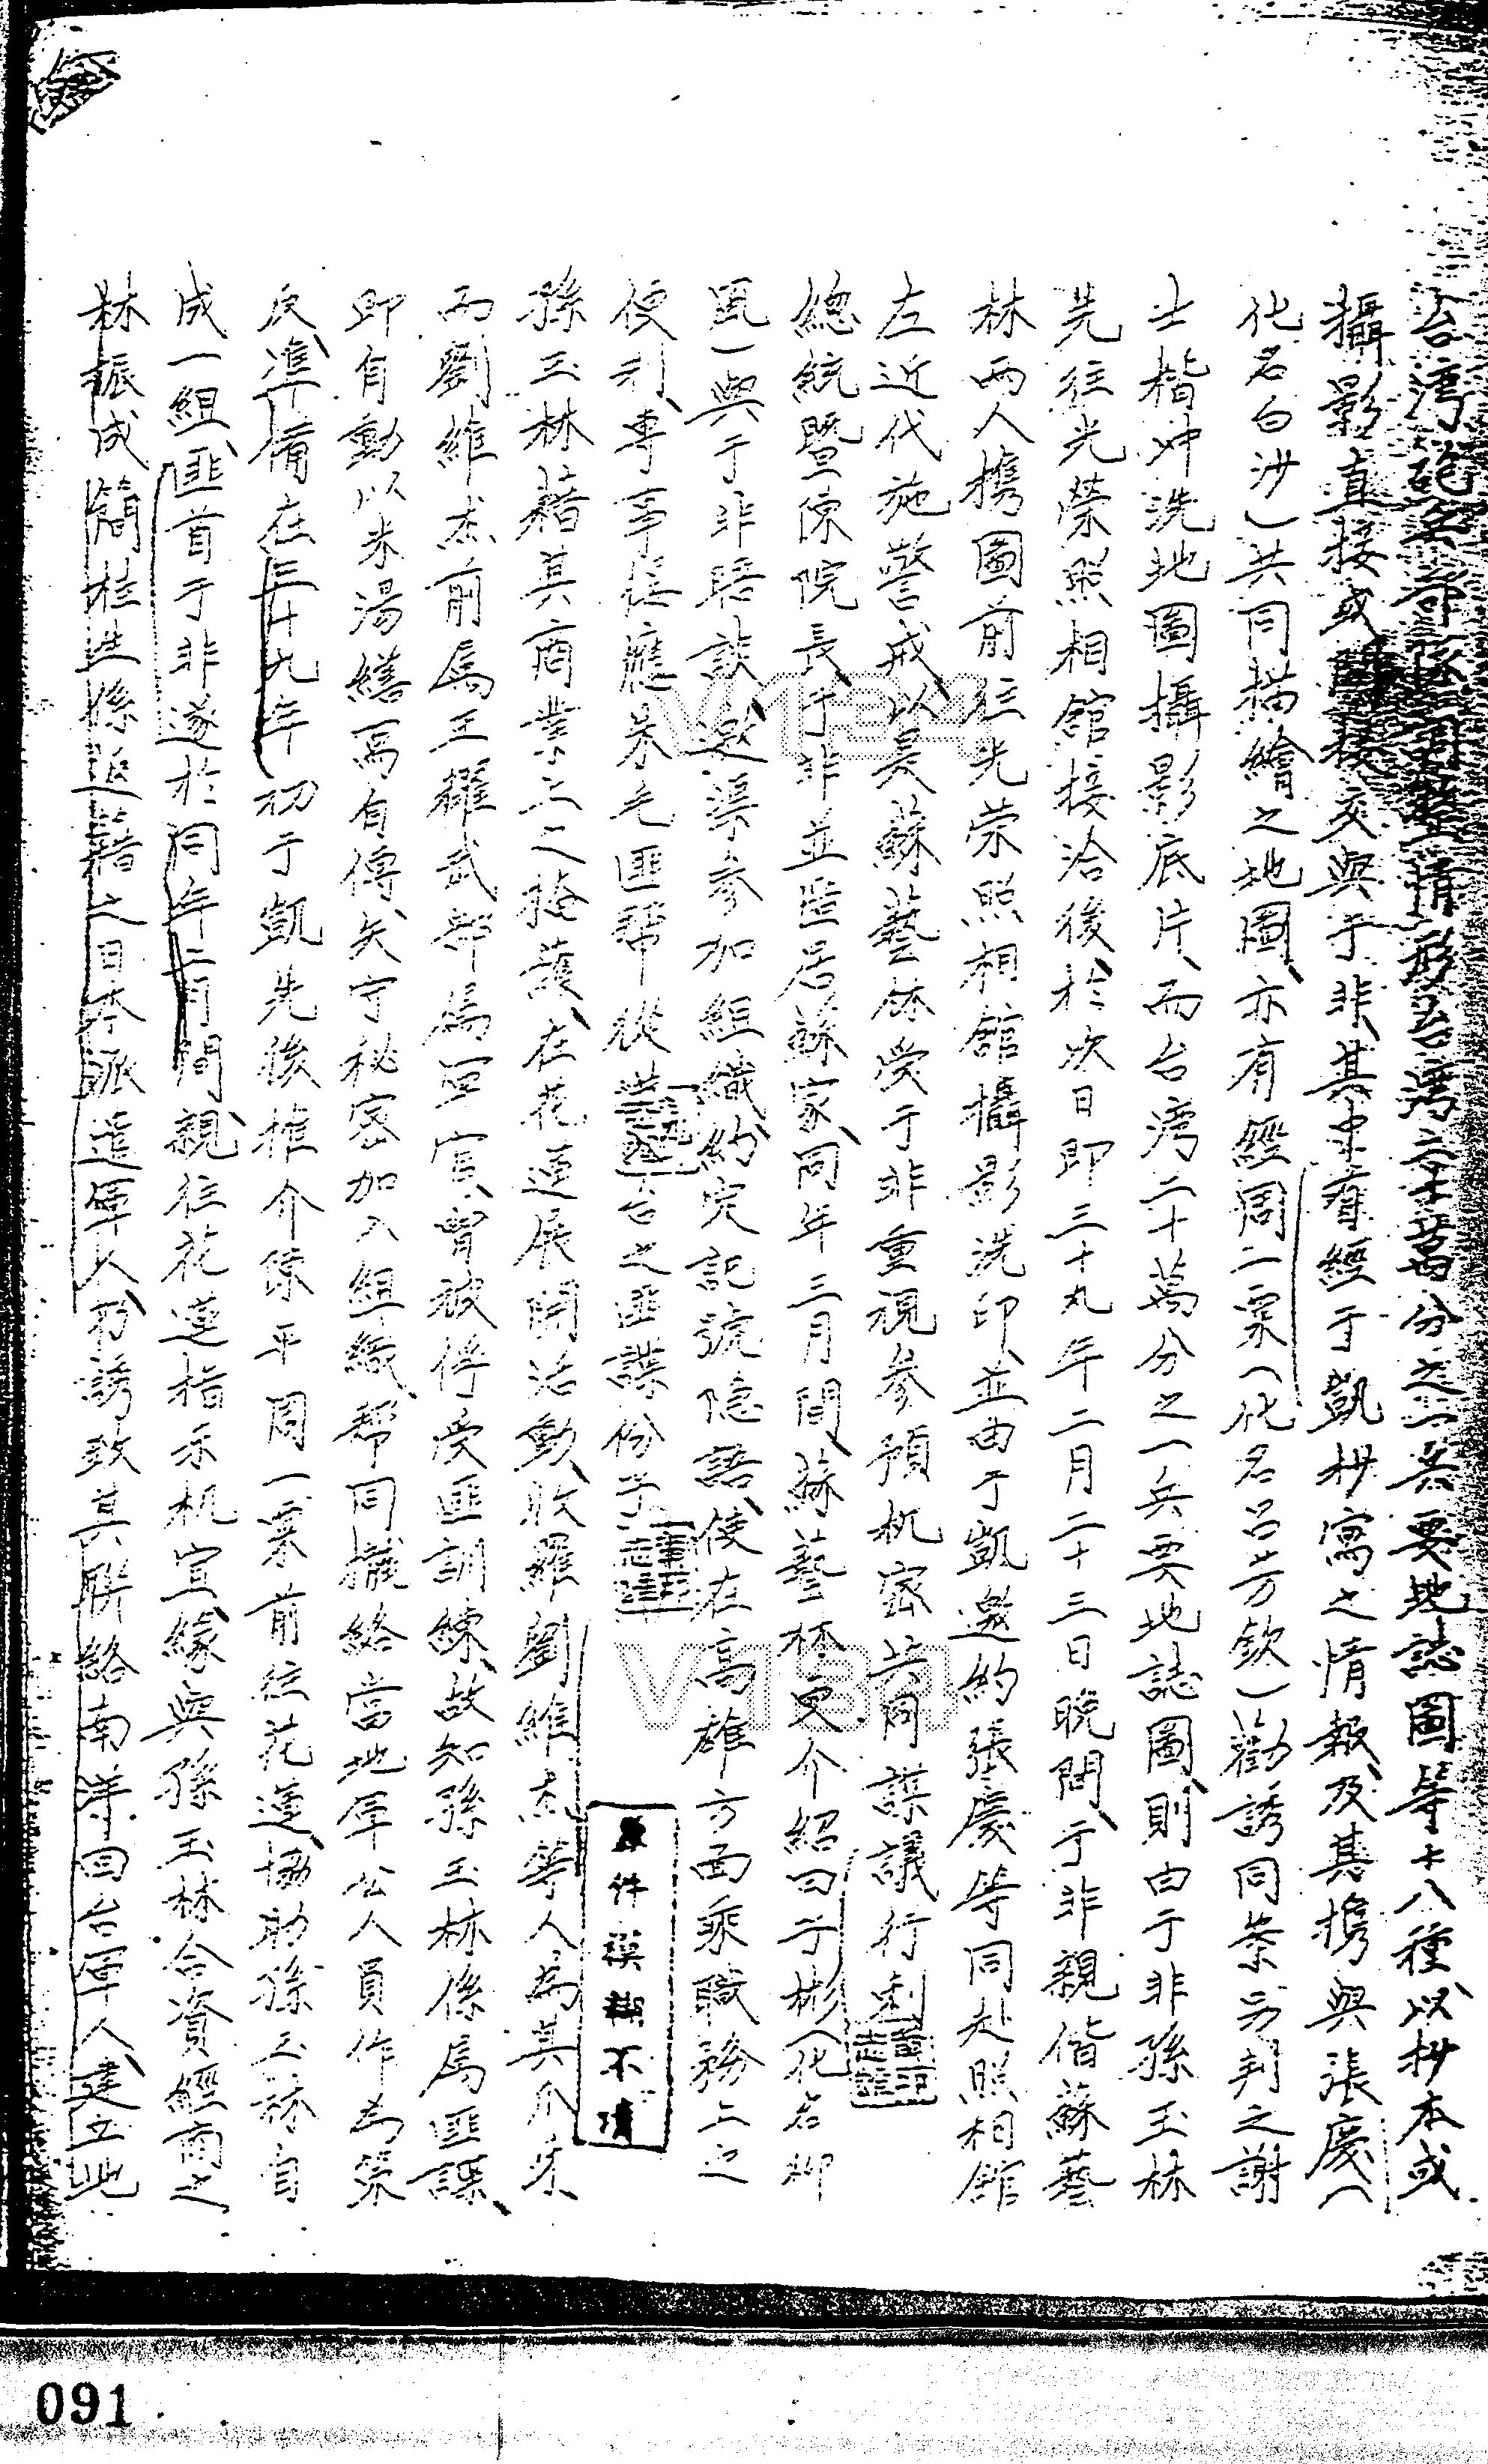 台灣砲兵部隊調整情形台灣二十萬分之一兵要地誌圖等十八種以抄本或
攝影直接或間接交與于非、其中有經于凱抄寫之情報及其携與張慶(
化名白沙)共同描繪之地圖、亦有經周一粟(化名呂方欽)勸誘同案另判之謝
士楷冲洗地圖攝影底片、而台灣二十萬分之一兵要地誌圖、則由于非孫玉林
先往光榮照相館接洽後、於次日即三十九年二月二十三日晚間、于非親偕蘇藝
林兩人携圖前往光榮照相館攝影洗印、並由于凱邀約張慶等同赴照相館
左近代施警戒、以是蘇藝林受于非重視參預机密共同謀議行刺
總統暨陳院長、于非並匿居蘇家、同年三月間、蘇藝林更介紹田子彬(化名柳
風)與于非晤談、邀渠參加組織、約定記號隐語、使在高雄方面乘職務上之
便利、專事接應朱毛匪幫從 台之匪諜份子
孫玉林藉其商業上之掩護、在花蓮展開活動、收羅劉維杰等人為其爪牙、
而劉維杰前為王耀武部屬軍官、曾被俘受匪訓練、故知孫玉林係屬匪諜、
即有動以米湯繕寫自傳矢守秘密加入組織、帮同攏絡當地軍公人員作為策
反準備、在三十九年初于凱先後推介陳平周一粟前往花蓮、協助孫玉林自
成一組、匪首于非遂於同年二月間、親往花蓮指示机宜、緣與孫玉林合資經商之
林振成簡桂進係匪籍之日本派遣軍人、乃誘致其聯絡南洋回台軍人、建立此
原件模糊不清
V134
V134
091